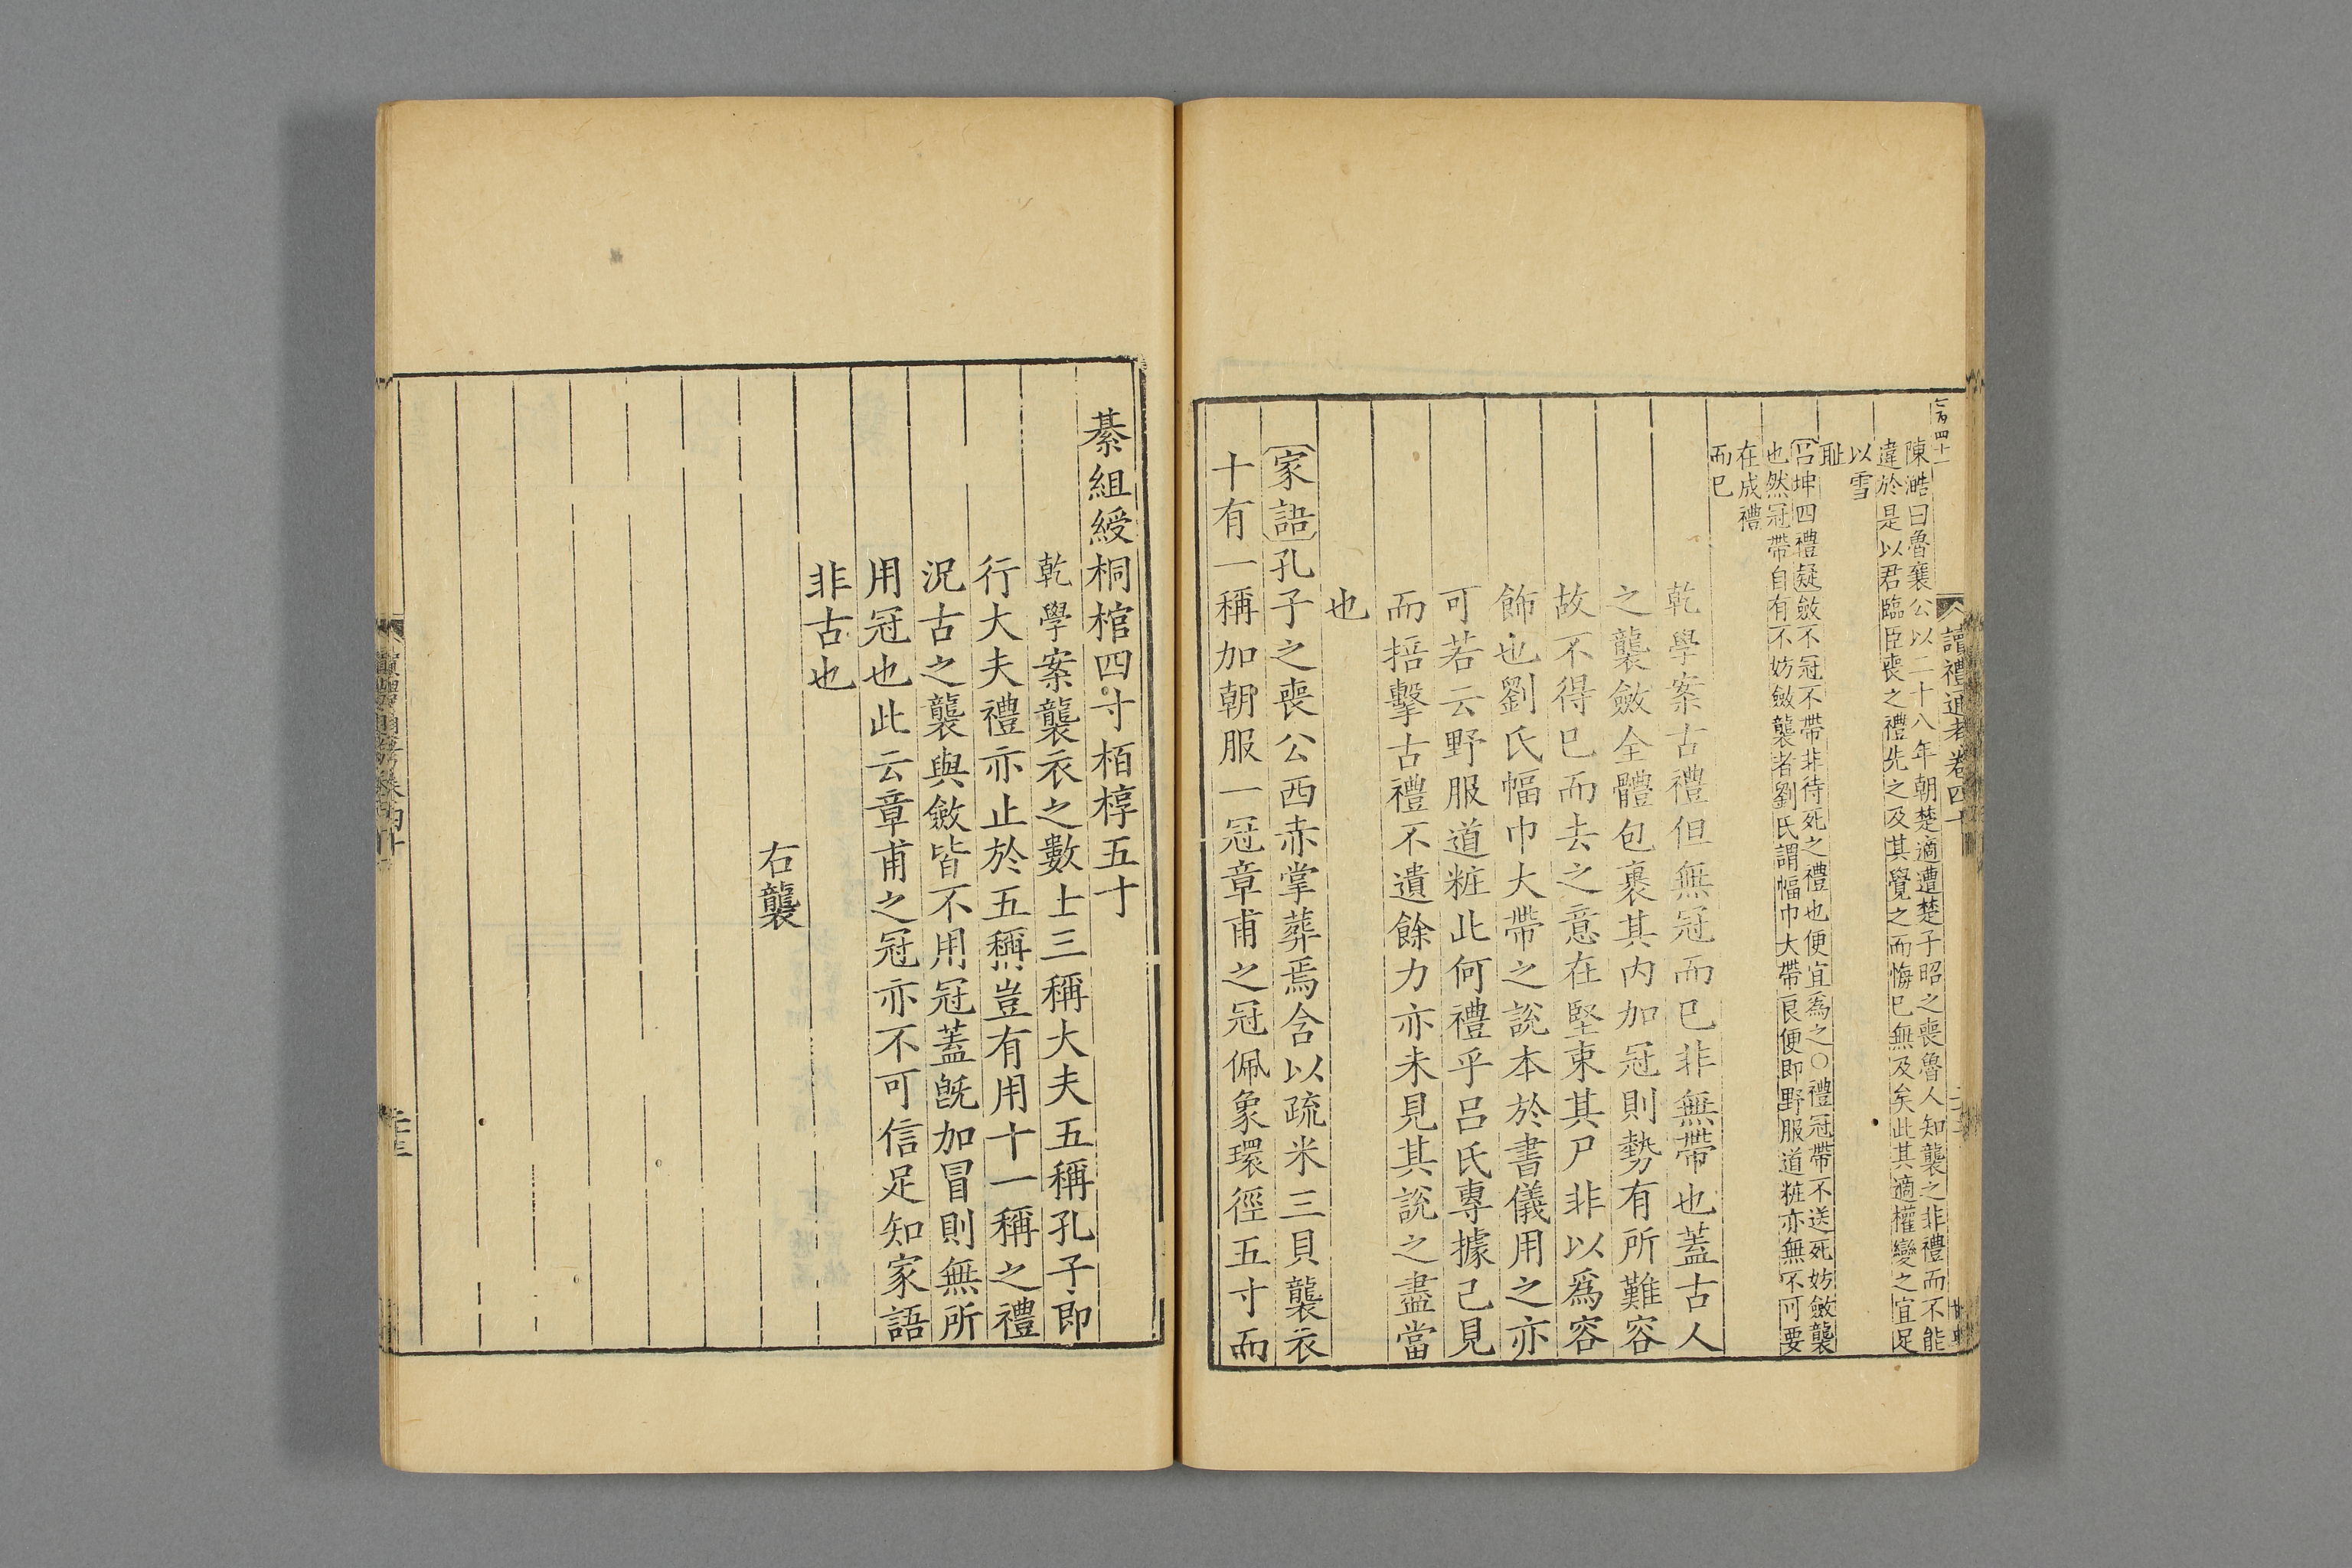 讀禮通考卷四十
陳澔曰魯襄公以二十八年朝楚適遭楚子昭之喪魯人知襲之非禮而不能
違於是以君臨臣喪之禮先之及其覺之而悔已無及矣此其適權變之宜足
以雪
耻
呂坤四禮疑斂不冠不帶非待死之禮也便宜為之○禮冠帶不送死妨斂襲
也然冠帶自有不妨斂襲者劉氏謂幅巾大帶良便即野服道粧亦無不可要
在成禮
而已
乾學案古禮但無冠而已非無帶也蓋古人
之襲斂全體包裹其內加冠則勢有所難容
故不得已而去之意在堅束其尸非以為容
飾也劉氏幅巾大帶之說本於書儀用之亦
可若云野服道粧此何禮乎呂氏專據己見
而掊擊古禮不遺餘力亦未見其說之盡當
也
家語孔子之喪公西赤掌葬焉含以疏米三貝襲衣
十有一稱加朝服一冠章甫之冠佩象環徑五寸而
綦組綬桐棺四寸栢椁五寸
乾學案襲衣之數士三稱大夫五稱孔子即
行大夫禮亦止於五稱豈有用十一稱之禮
況古之襲與斂皆不用冠蓋旣加冒則無所
用冠也此云章甫之冠亦不可信足知家語
非古也
右襲